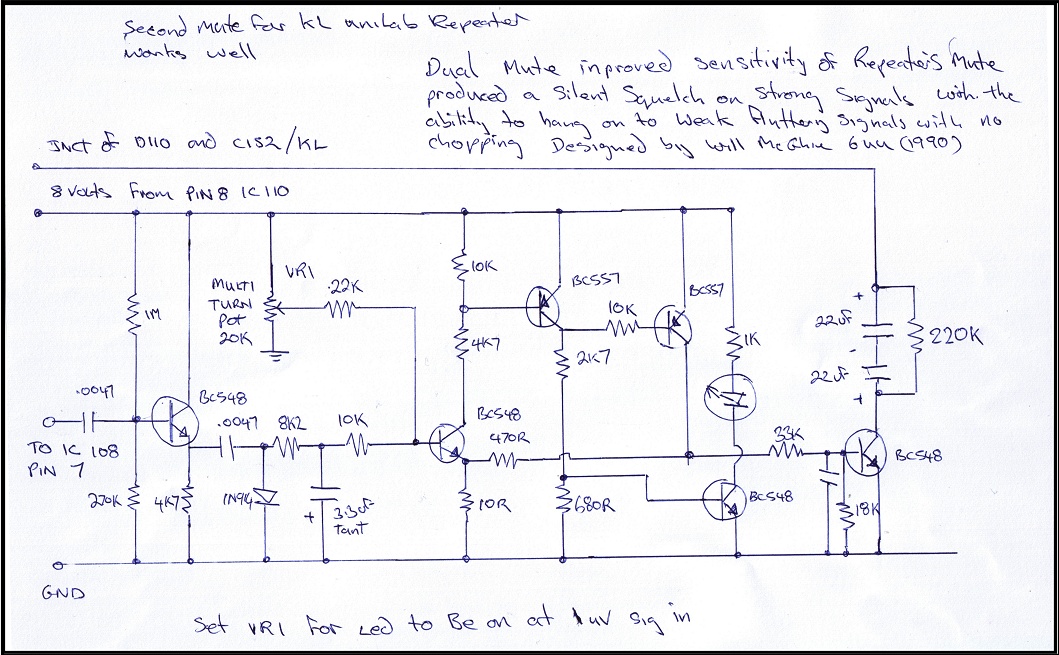 Second Mute for KL Unilab Repeater
works well
Dual Mute inproved sensitivity of Repeater's Mute
produced a Silent Squelch on Strong Signals with the
ability to hang on to weak fluttery signals with no
chopping Designed by Will McGhie 6UU (1990)
JNCT of D110 and C152/KL
8 Volts From PIN 8 IC 110
VR1
MULTI
TURN
Pot
20K
.22K
10K
BC557
BC557
1M
10K
4K7
2K7
1K
+
22uF
22uF
-
+
220K
.0047
BC548
TO IC 108
PIN 7
.0047
8K2
10K
BC548
470R
33K
BC548
270K
4K7
1N914
+
3.3uF
Tant
10R
680R
BC548
18K
GND
Set VR1 For Led to Be on at 1uV sig in